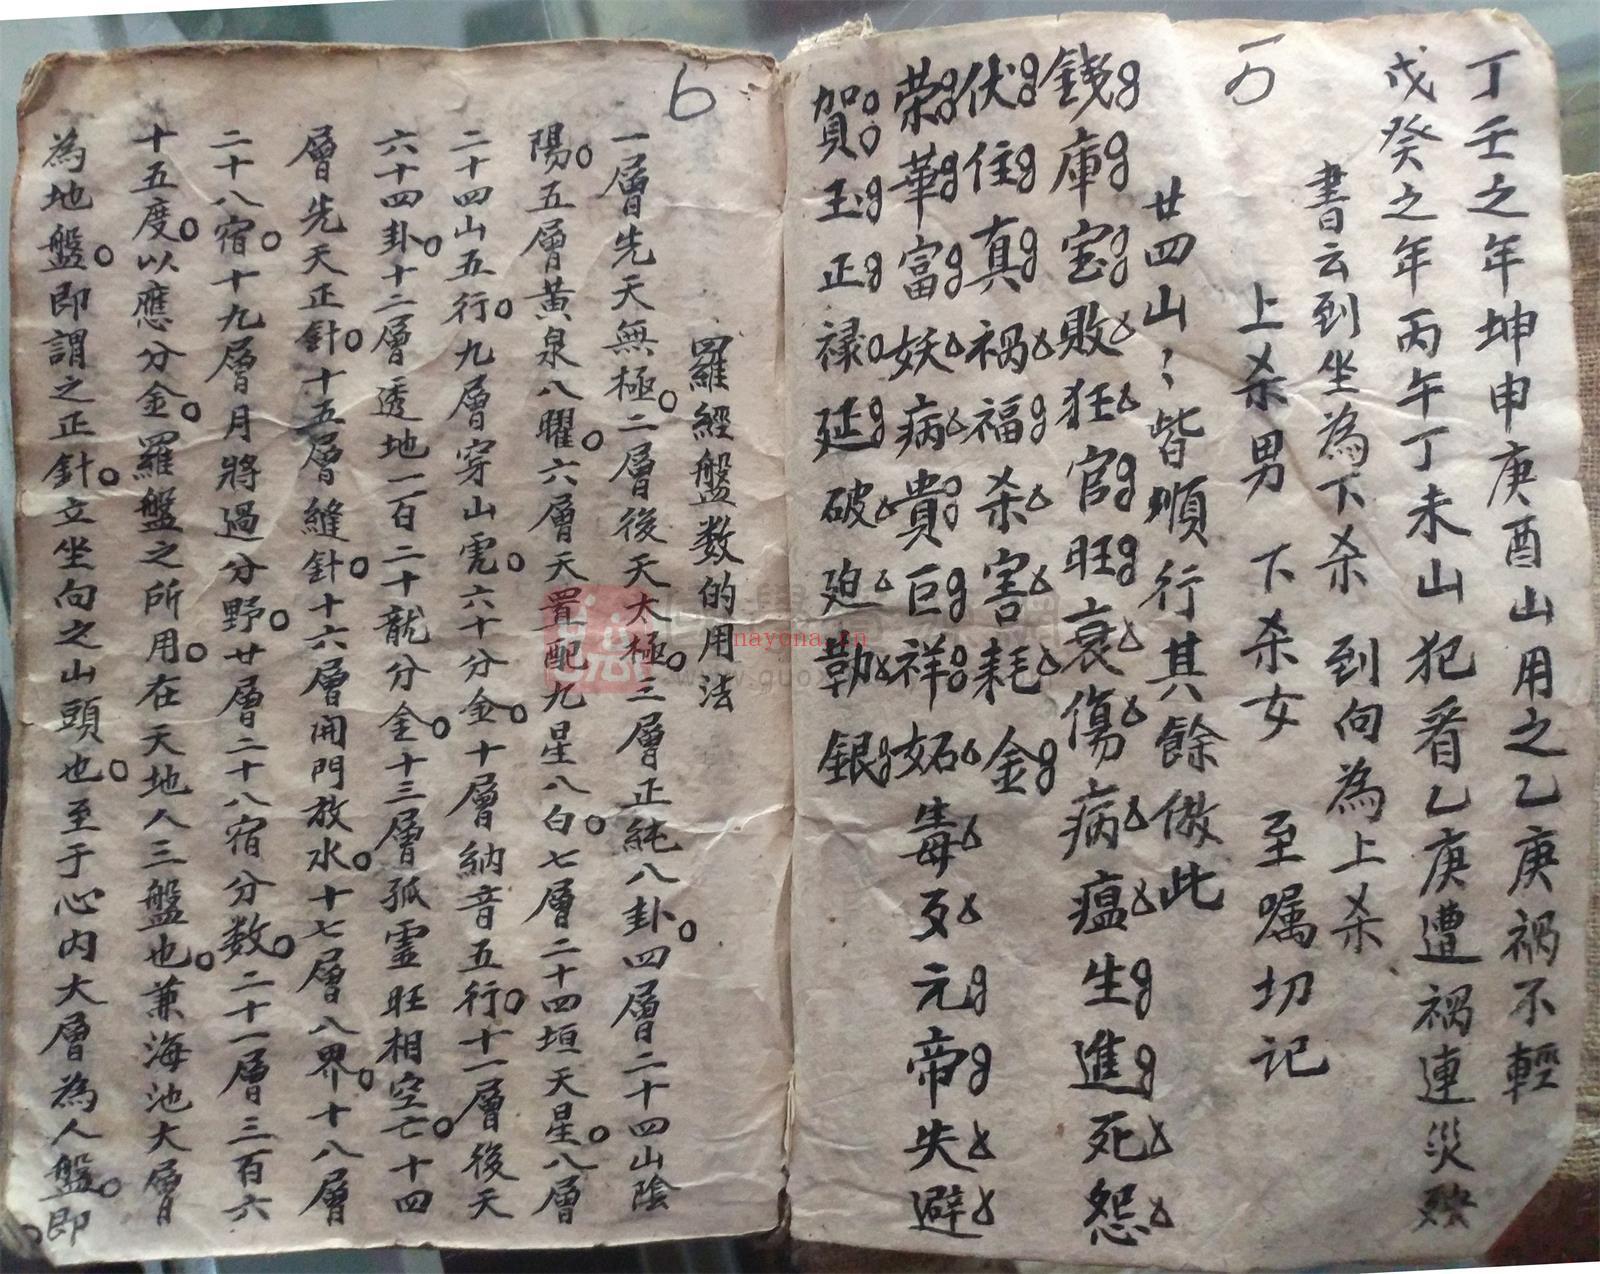 丁壬之年坤申庚酉山用之乙庚禍不輕
戊癸之年丙午丁未山犯看乙庚遭禍連災殃
書云到坐為下杀 到向為上杀
上杀男 下杀女 至嘱切记
廿四山〻皆順行其餘倣此
錢庫宝敗狂官旺衰傷病瘟生進死怨
伏住真禍福杀害耗金
荣華富妖病貴巨祥妬毒歹元帝失避
賀玉正禄延破廹勒銀
6
羅經盤数的用法
一層先天無極。二層後天太極。三層正純八卦。四層二十四山陰
陽。五層黃泉八曜。六層天罡配九星八白。七層二十四垣天星。八層
二十四山五行。九層穿山虎。六十分金。十層納音五行。十一層後天
六十四卦。十二層透地一百二十龍分金。十三層孤虛旺相空亡。十四
層先天正針。十五層縫針。十六層開門放水。十七層八界。十八層
二十八宿。十九層月將過分野。廿層二十八宿分数。二十一層三百六
十五度。以應分金。羅盤之所用。在天地人三盤也。兼海池大層
為地盤。即謂之正針。立坐向之山頭也。至于心内大層為人盤。即
國學
nayona.cn
www.guox